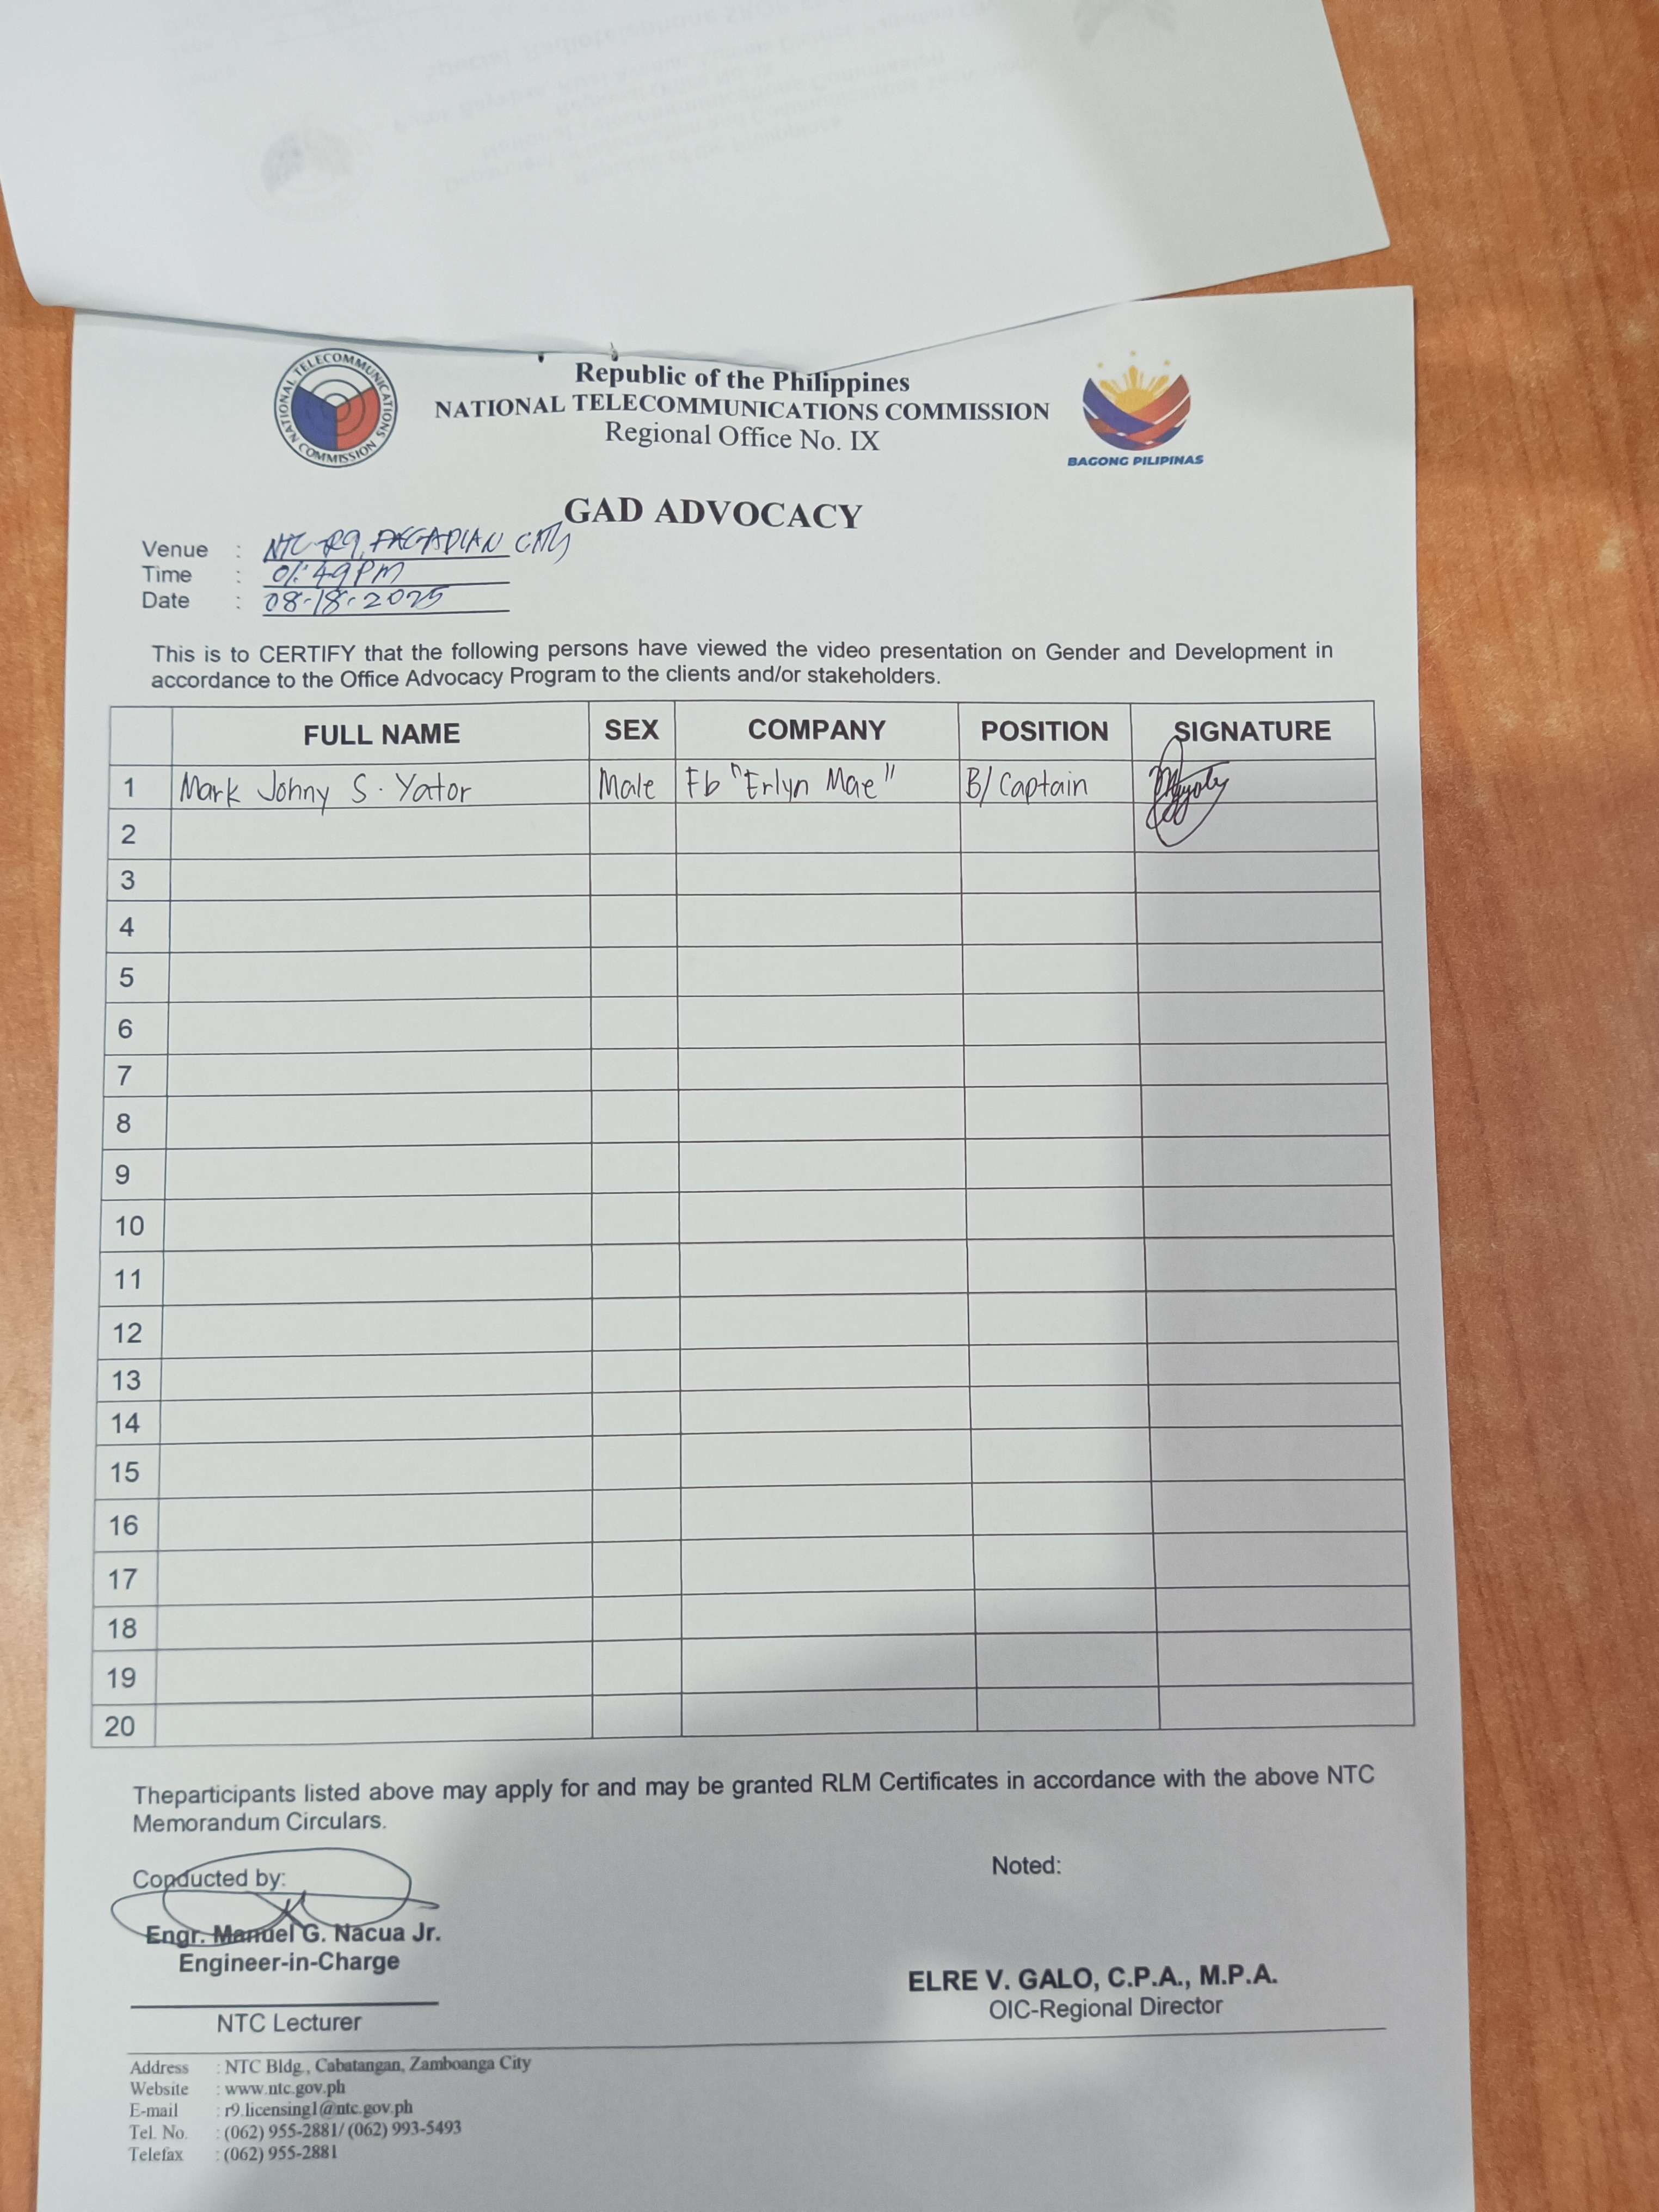 NATIONAL TELECOMMUNICATIONS COMMISSION
Republic of the Philippines
NATIONAL TELECOMMUNICATIONS COMMISSION
Regional Office No. IX
BAGONG PILIPINAS
GAD ADVOCACY
Venue : NTC-R9, PAGADIAN CITY
Time : 01:49PM
Date : 08-18-2025
This is to CERTIFY that the following persons have viewed the video presentation on Gender and Development in
accordance to the Office Advocacy Program to the clients and/or stakeholders.
FULL NAME SEX COMPANY POSITION SIGNATURE
1 Mark Johny S. Yator Male Fb "Erlyn Mae" B/Captain
2
3
4
5
6
7
8
9
10
11
12
13
14
15
16
17
18
19
20
Theparticipants listed above may apply for and may be granted RLM Certificates in accordance with the above NTC
Memorandum Circulars.
Conducted by:
Noted:
Engr. Manuel G. Nacua Jr.
Engineer-in-Charge
ELRE V. GALO, C.P.A., M.P.A.
OIC-Regional Director
NTC Lecturer
Address : NTC Bldg., Cabatangan, Zamboanga City
Website : www.ntc.gov.ph
E-mail : r9.licensing1@ntc.gov.ph
Tel. No. : (062) 955-2881/ (062) 993-5493
Telefax : (062) 955-2881